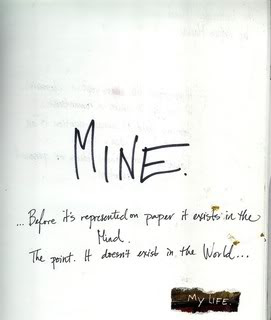 MINE.
... Before it's represented on paper it exists in the
Mind.
The point. It doesn't exist in the World...
MY LIFE.